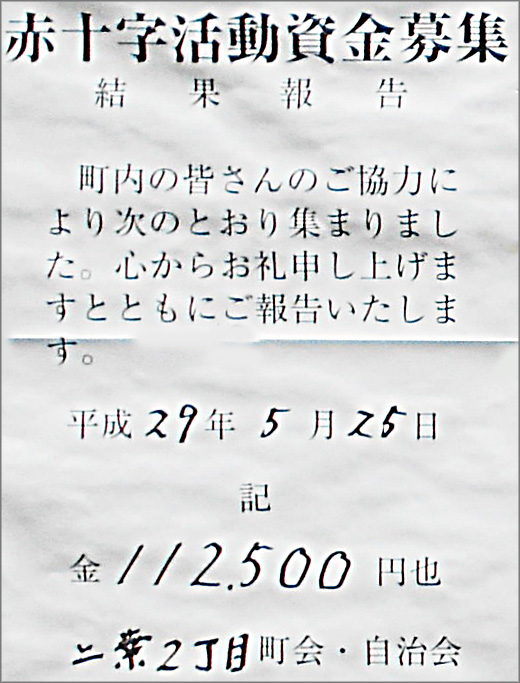 赤十字活動資金募集
結果報告
町内の皆さんのご協力に
より次のとおり集まりまし
た。心からお礼申し上げま
すとともにご報告いたしま
す。
平成29年5月25日
記
金112.500円也
二葉2丁目町会・自治会